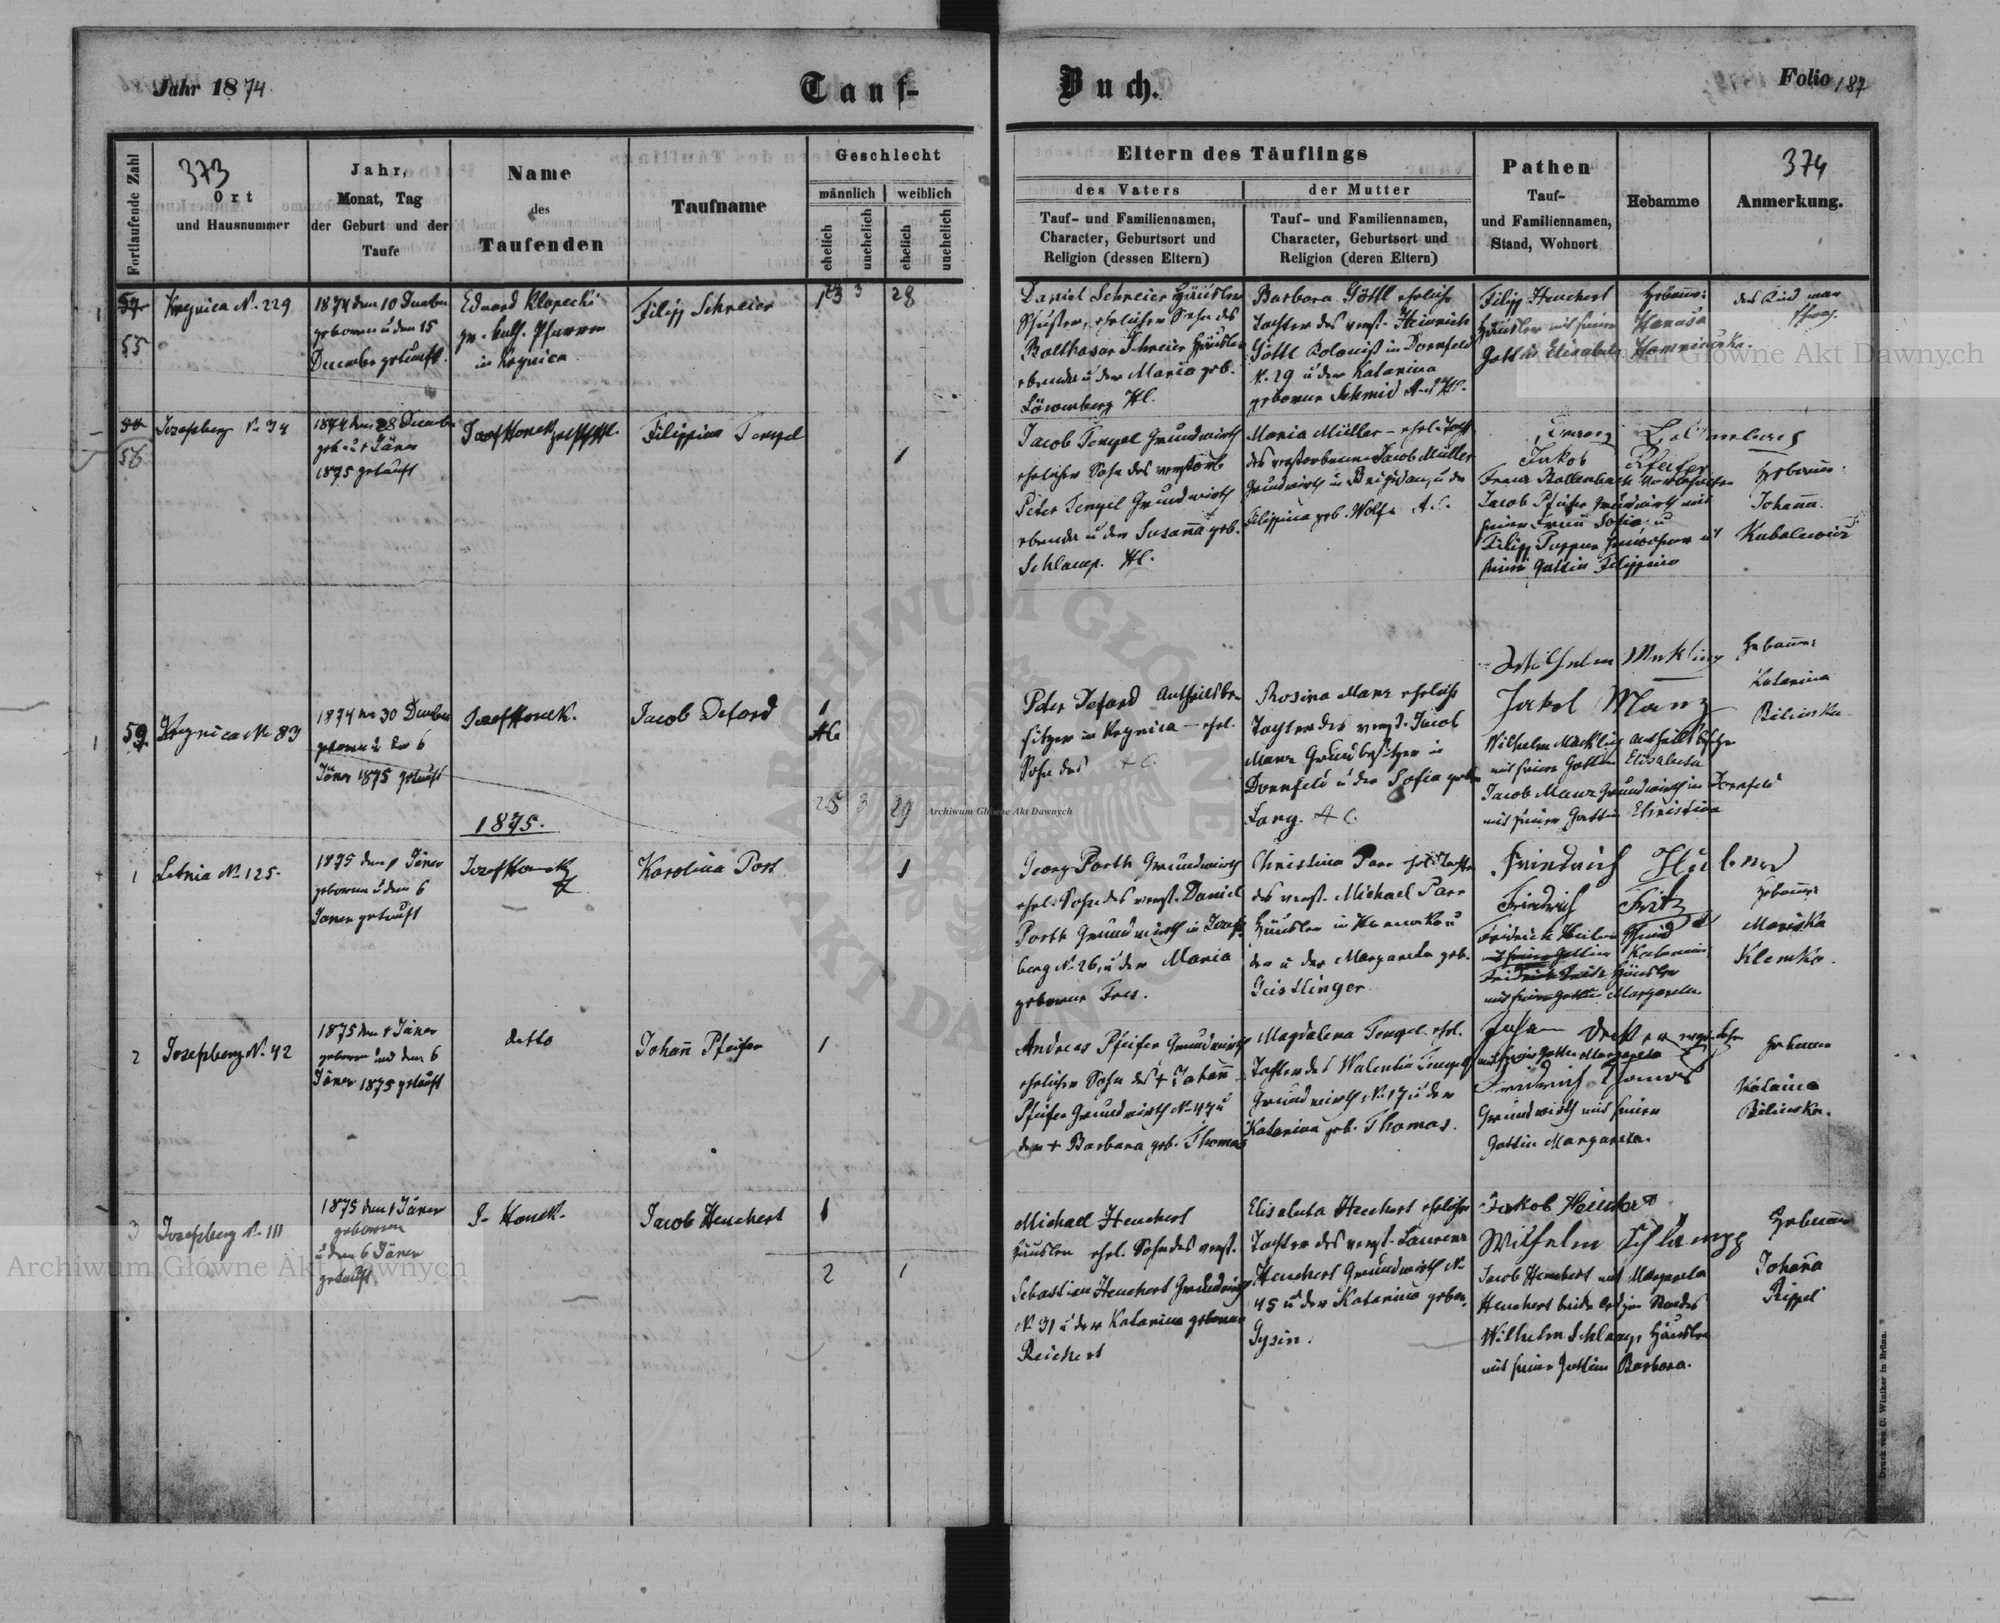 Jahr 1874
Tauf-
Buch.
Folio 187
Fortlaufende Zahl
373
Ort
und Hausnummer
Jahr,
Monat, Tag
der Geburt und der
Taufe
Name
des
Taufenden
Taufname
Geschlecht
männlich
weiblich
ehelich
unehelich
ehelich
unehelich
Eltern des Täuflings
des Vaters
der Mutter
Tauf- und Familiennamen,
Character, Geburtsort und
Religion (dessen Eltern)
Tauf- und Familiennamen,
Character, Geburtsort und
Religion (deren Eltern)
Pathen
Tauf-
und Familiennamen,
Stand, Wohnort
Hebamme
374
Anmerkung.
55
Krynica N. 229
1874 den 10 December
geboren u den 15
December getauft
Eduard Klopecki
Pfarrer
in Krynica
Filipp Schreier
3
28
Daniel Schreier Häusler
ehelicher Sohn des
Balthasar Schreier Häusler
ebenda u der Maria geb.
Löwenberg
Barbara Göttl eheliche
Tochter des verst. Heinrich
Göttl Kolonist in Dornfeld
N. 29 u der Katarina
geborene Schmid
Filipp Heuchert
Häusler mit seiner
Gattin Elisabeta
Hebamme:
Hanusa
56
Josefsberg N. 34
1874 den 28 December
geb. u 1 Jäner
1875 getauft
Josef Honek
Filippina Tengel
1
Jacob Tengel Grundwirth
ehelicher Sohn des verstorb
Peter Tengel Grundwirth
ebenda u der Susanna geb.
Schlamp.
Maria Müller - ehel. Tocht
des verstorbenen Jacob Müller
Grundwirth in Brigidau, u der
Filippina geb. Wolfe A.C.
Jakob Pfeifer
Franz Bollenbach
Jacob Pfeifer Grundwirth mit
seiner Frau Sofia u
Filipp
seiner Gattin Filippina
Hebamme:
Johanna
Kubalewicz
59
Krynica N. 83
1874 den 30 December
geboren u den 6
Jäner 1875 getauft
Josef Honek.
Jacob Deford
1
25 3 29
Peter Deford Antheilsbe-
sitzer in Krynica - ehel.
Sohn des
Rosina Manz eheliche
Tochter des verst. Jacob
Manz Grundbesitzer in
Dornfeld u der Sofia geb
Lang. A C.
Wilhelm Mekling
Jakob Manz
mit seiner Gattin Elisabeta
Jacob Manz Grundwirth in Dornfeld
mit seiner Gattin Christina
Hebamme:
Katarina
Bilinska
1875.
1
Letnia N. 125.
1875 den 1 Jäner
geboren u den 6
Jäner getauft
Josef Honek
Karolina Port
1
Georg Porth Grundwirth
ehel. Sohn des verst. Daniel
Porth Grundwirth in Josefs-
berg N. 26, u der Maria
geborene Fries.
Christina Parr ehel. Tochter
des verst. Michael Parr
Häusler in
u der Margareta geb.
Geistlinger
Friedrich
Friedrich Fritz
mit seiner Gattin Katarina
Friedrich Fritz Häusler
mit seiner Gattin Margareta
Hebamme:
Maruska
Klemko.
2
Josefsberg N. 42
1875 den 1 Jäner
geboren und den 6
Jäner 1875 getauft
detto
Johann Pfeifer
1
Andreas Pfeifer Grundwirth
ehelicher Sohn des + Johann
Pfeifer Grundwirth N. 47 u
der + Barbara geb. Thomas
Magdalena Tengel ehel.
Tochter des Walentin Tengel
Grundwirth N. 17 u der
Katarina geb. Thomas.
Johann Decker
mit seiner Gattin Margareta
Friedrich Thomas
Grundwirth mit seiner
Gattin Margareta.
Hebamme
Katarina
Bilinska.
3
Josefsberg N. 111
1875 den 1 Jäner
geboren
u den 6 Jäner
getauft.
J. Honek.
Jacob Heuchert
1
2
1
Michael Heuchert
Häusler ehel. Sohn des verst.
Sebastian Heuchert Grundwirth
N. 31 u der Katarina geborene
Reichert
Elisabeta Heuchert eheliche
Tochter des verst. Laurenz
Heuchert Grundwirth N.
45 u der Katarina geben.
Gysin.
Jakob Heuchert
Wilhelm Schlamp
Jacob Heuchert mit Margareta
Heuchert beide ledigen Standes
Wilhelm Schlamp Häusler
mit seiner Gattin Barbara.
Hebamme
Johana
Rippel
Druck von C. Winiker in Brünn.
Archiwum Główne Akt Dawnych
Archiwum Główne Akt Dawnych
Główne Akt Dawnych
ARCHIWUM GŁÓWNE
AKT DAWNYCH